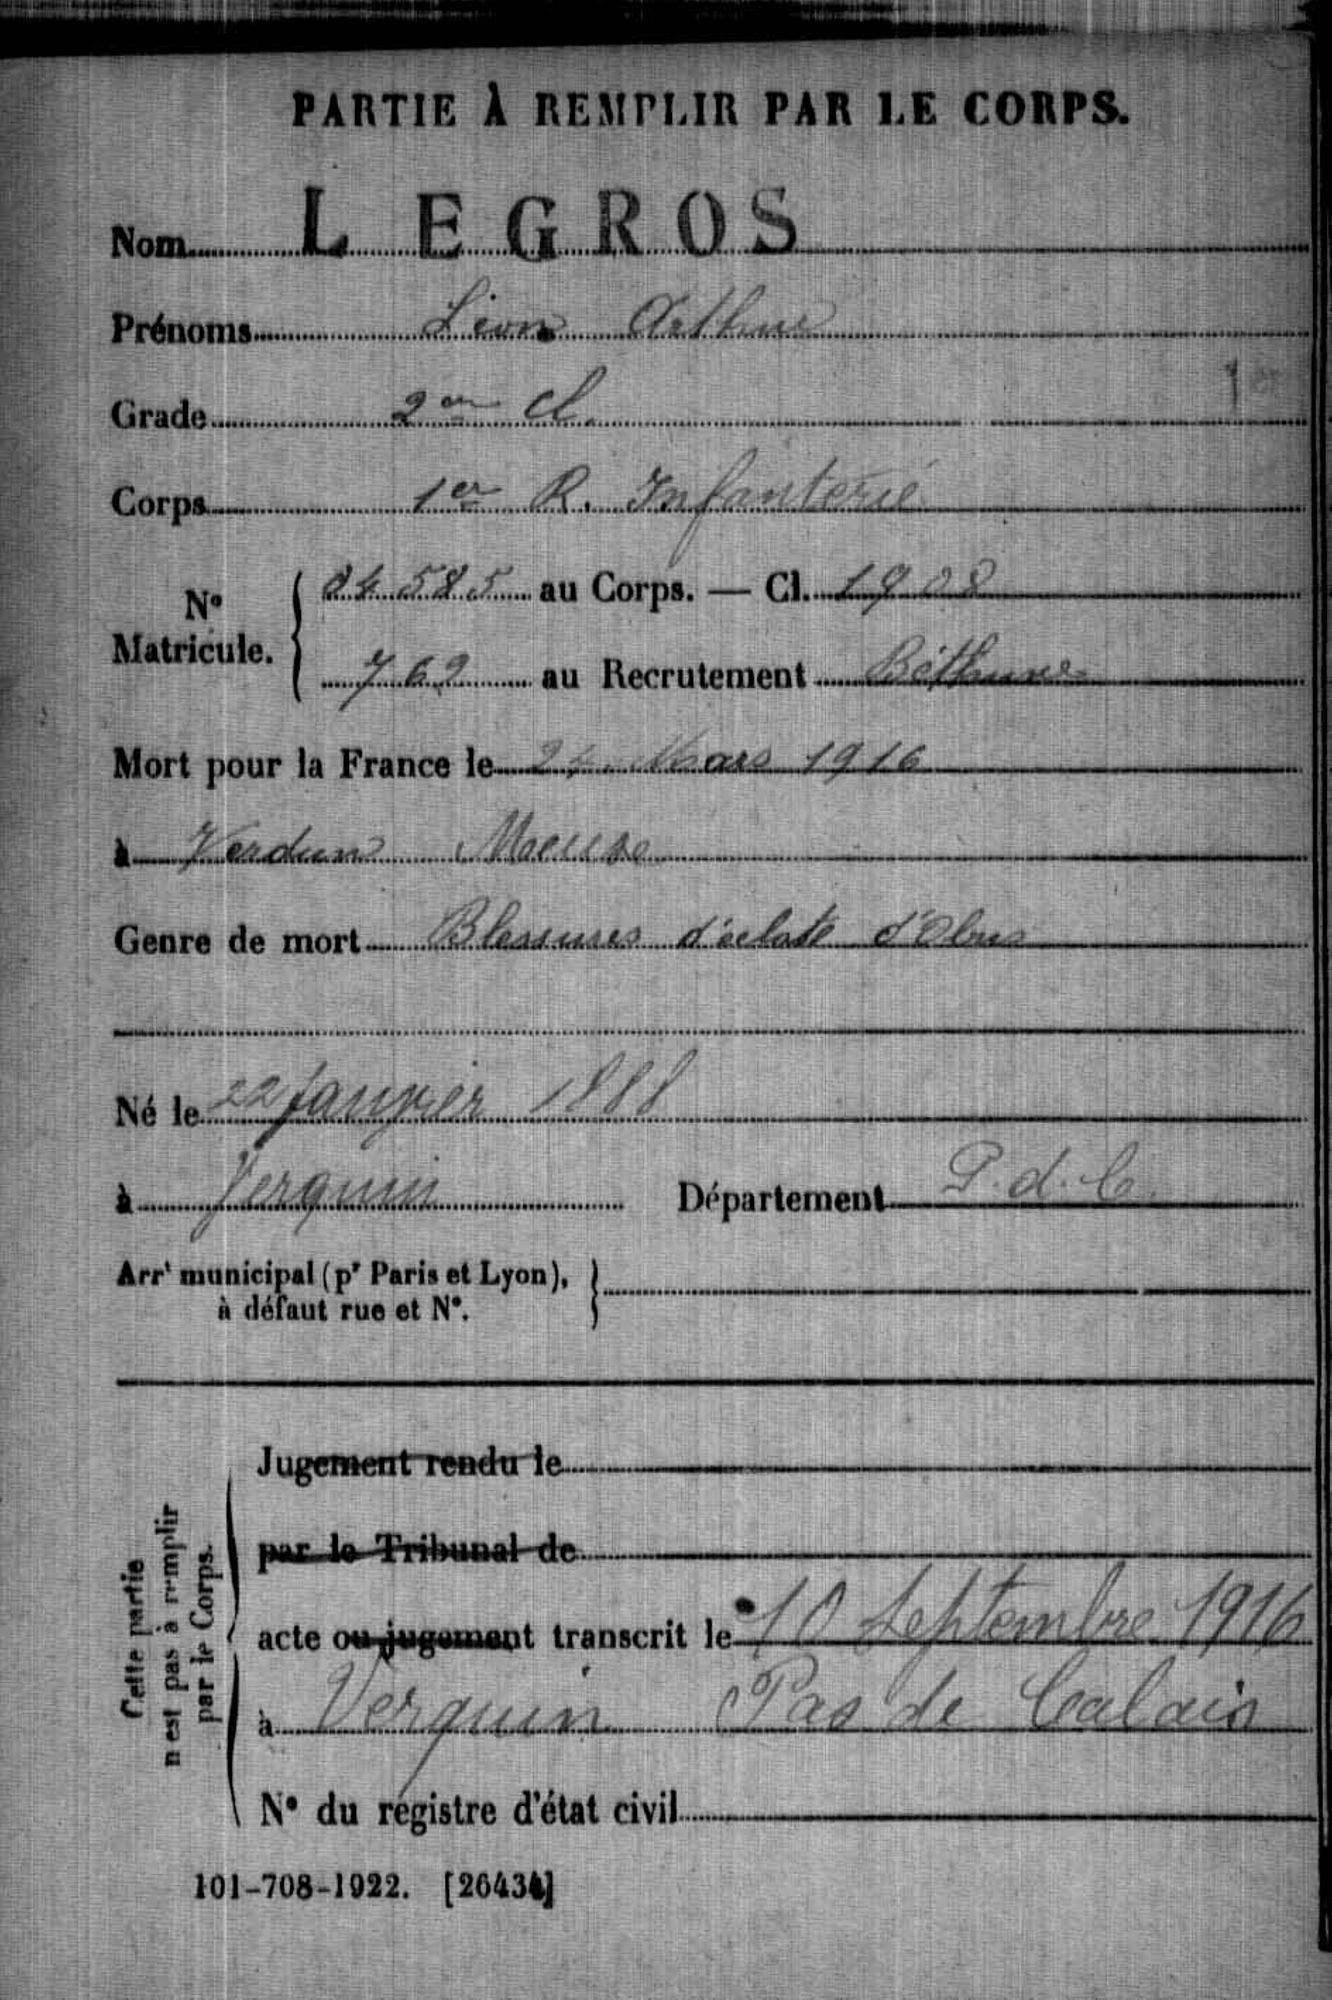 PARTIE À REMPLIR PAR LE CORPS.
Nom LEGROS
Prénoms Léon Arthur
Grade 2me Cl.
Corps 1er R. Infanterie
No Matricule. { 04585 au Corps. — Cl. 1908
769 au Recrutement Béthune
Mort pour la France le 24 Mars 1916
à Verdun Meuse
Genre de mort Blessures d'éclats d'Obus
Né le 22 Janvier 1888
à Verquin Département P.d.C.
Arrt municipal (pr Paris et Lyon),
à défaut rue et No.
Jugement rendu le
par le Tribunal de
acte ou jugement transcrit le 10 Septembre 1916
à Verquin Pas de Calais
No du registre d'état civil
Cette partie
n'est pas à remplir
par le Corps.
101-708-1922. [26434]